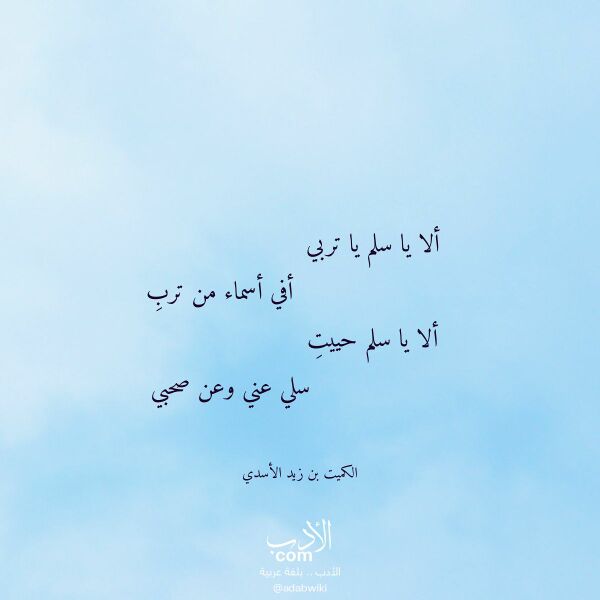 ألا يا سلم يا تربي
أفي أسماء من تربِ
ألا يا سلم حييتِ
سلي عني وعن صحبي
الكميت بن زيد الأسدي
الأدب
com
الأدب .. بلغة عربية
@adabwiki